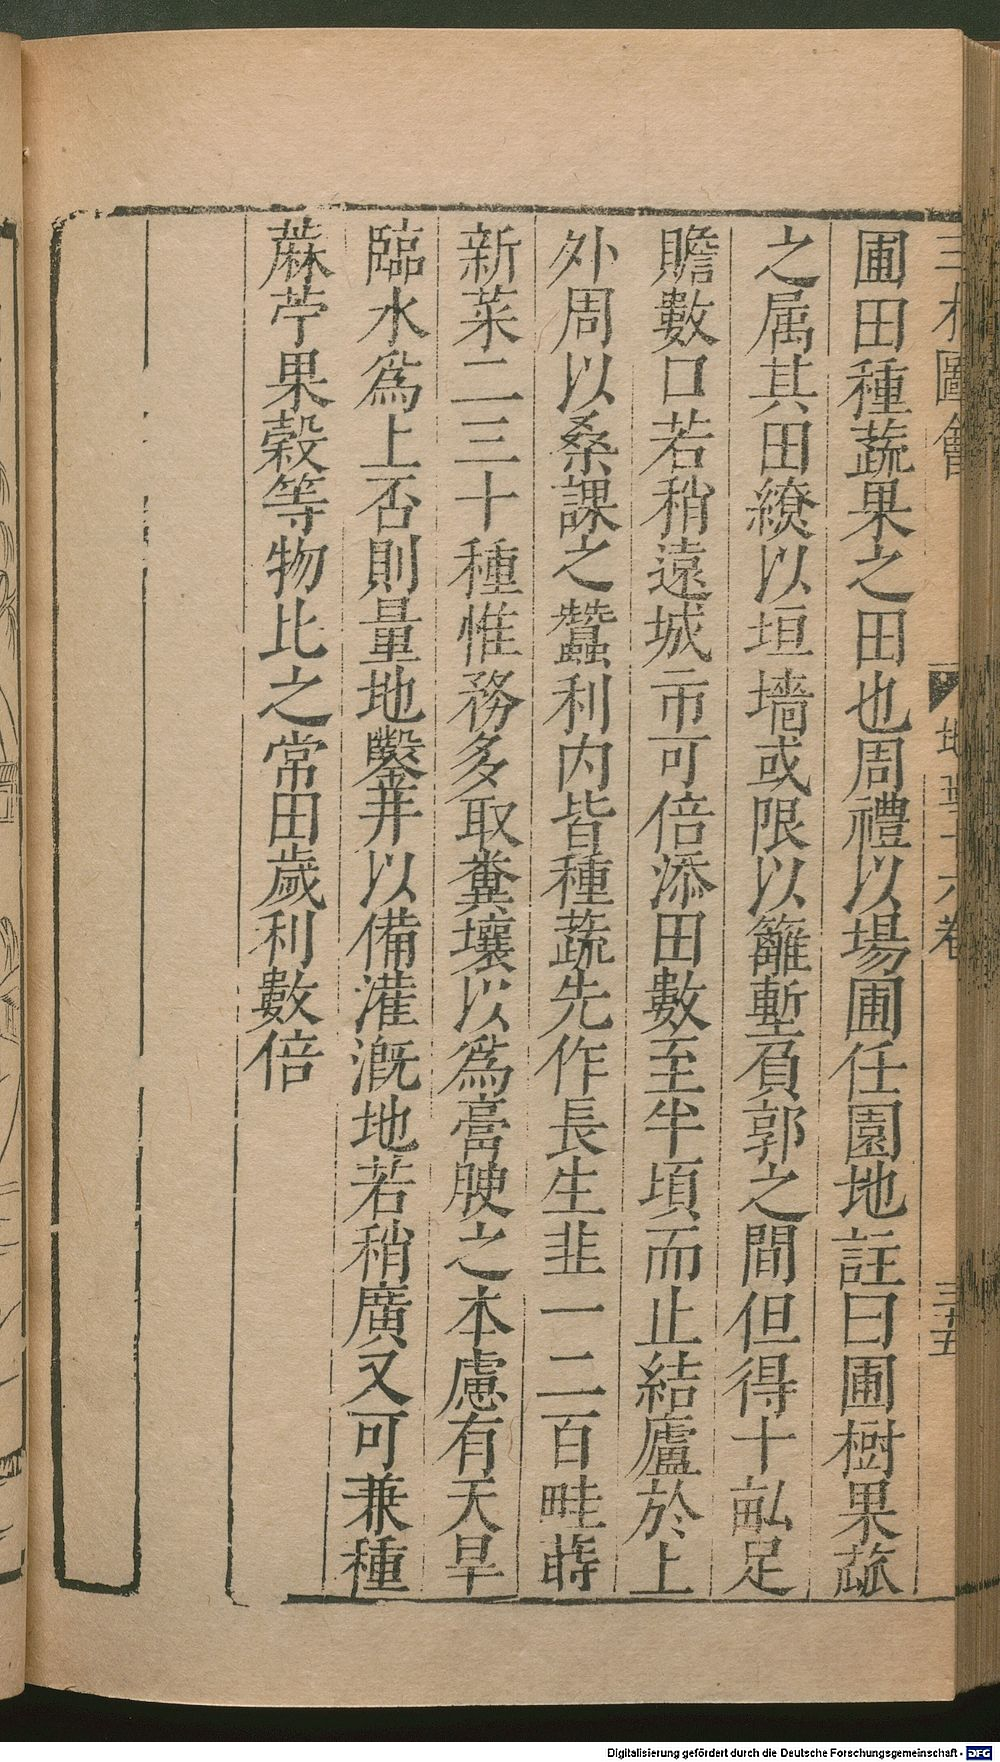 三才圖會 地理十六卷 三五
圃田種蔬果之田也周禮以場圃任園地註曰圃樹果蓏
之属其田繚以垣墻或限以籬塹負郭之間但得十畝足
贍數口若稍遠城市可倍添田數至半頃而止結廬於上
外周以桑課之蠶利内皆種蔬先作長生韭一二百畦蒔
新菜二三十種惟務多取糞壤以爲膏腴之本慮有天旱
臨水爲上否則量地鑿井以備灌漑地若稍廣又可兼種
蔴苧果穀等物比之常田歲利數倍
Digitalisierung gefördert durch die Deutsche Forschungsgemeinschaft - DFG